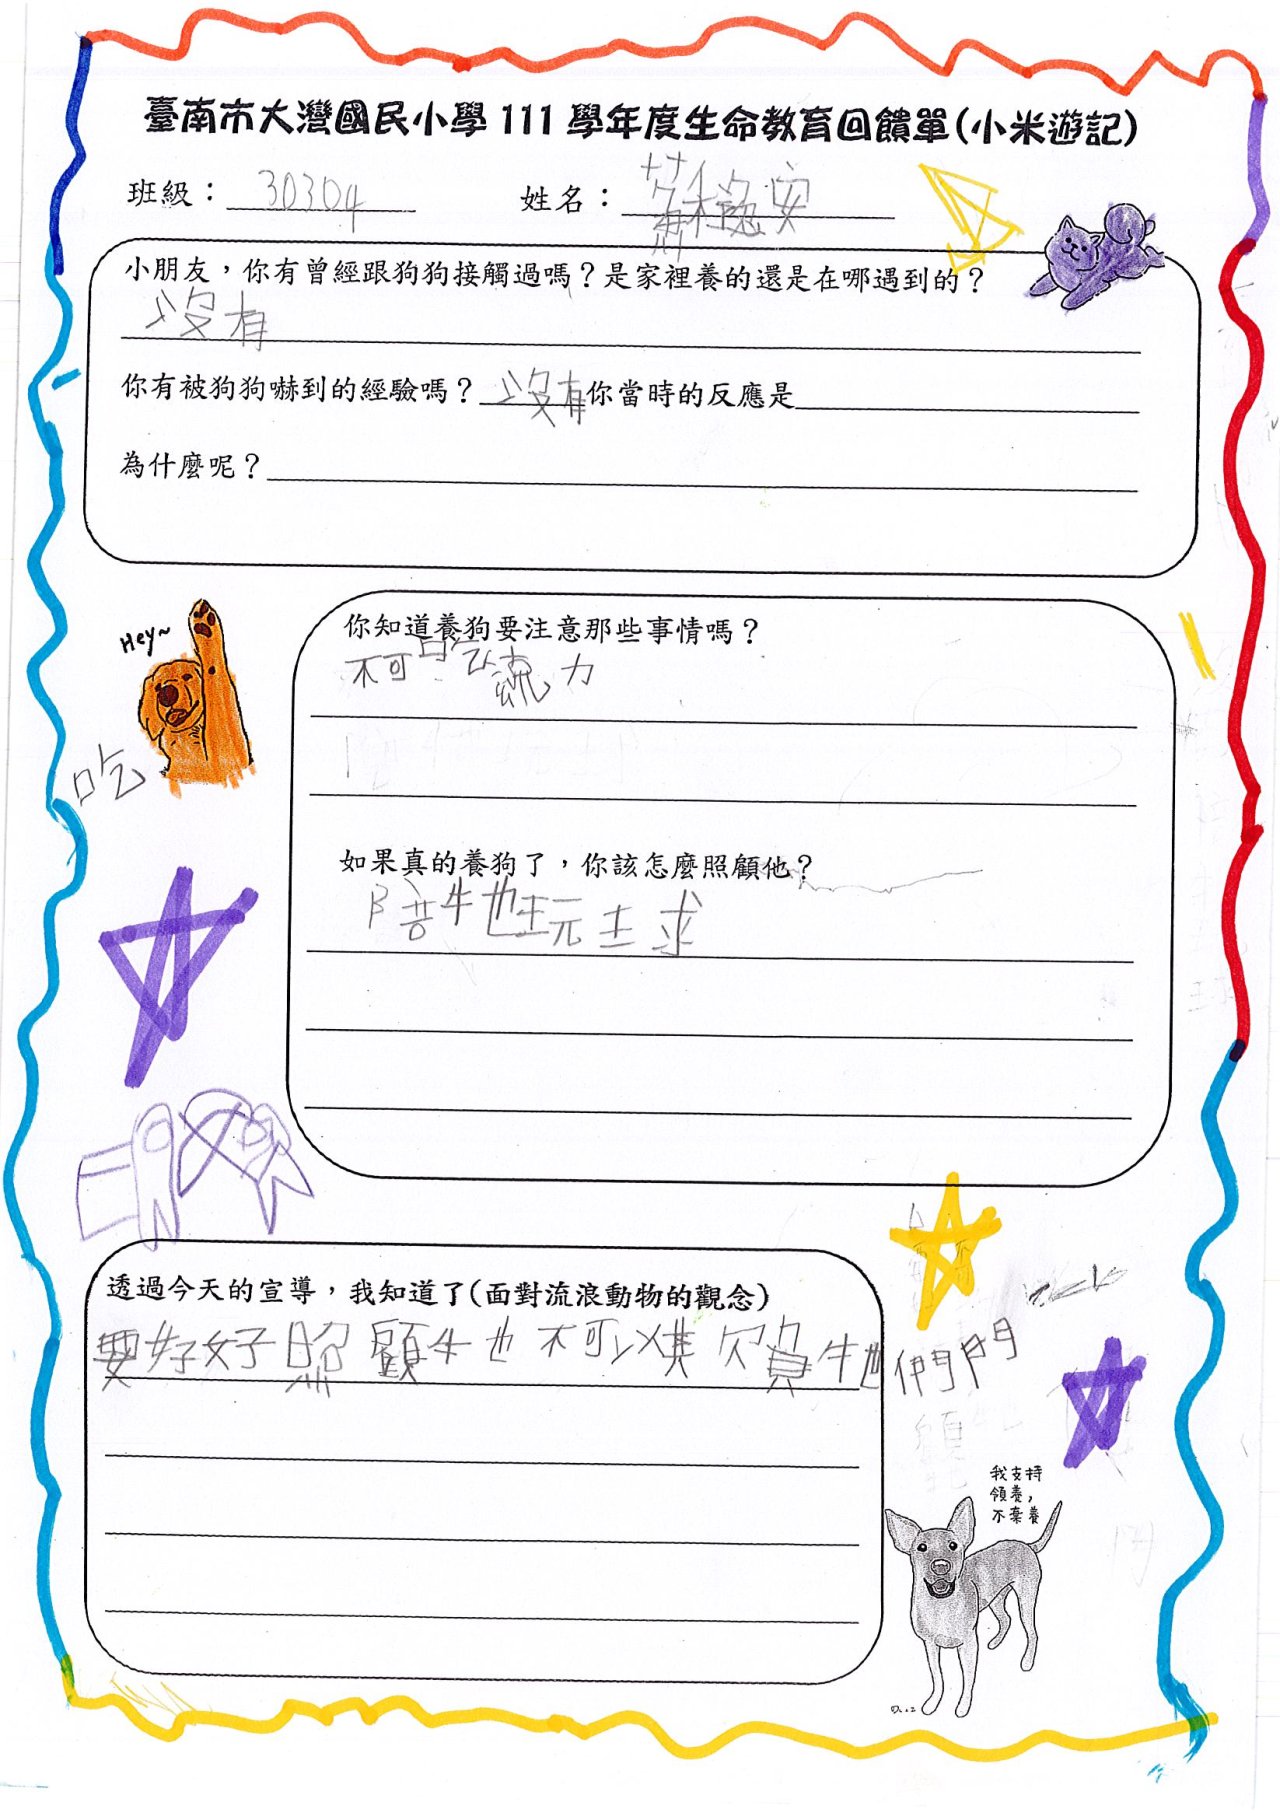 臺南市大灣國民小學 111 學年度生命教育回饋單(小米遊記)
班級：30304 姓名：蘇稳安
小朋友，你有曾經跟狗狗接觸過嗎？是家裡養的還是在哪遇到的？
沒有
你有被狗狗嚇到的經驗嗎？沒有你當時的反應是
為什麼呢？
Hey~
吃
你知道養狗要注意那些事情嗎？
不可吃巧力
如果真的養狗了，你該怎麼照顧他？
陪牠玩求
透過今天的宣導，我知道了(面對流浪動物的觀念)
要好好照顧牠不可以欺負牠們
我支持
領養，
不棄養